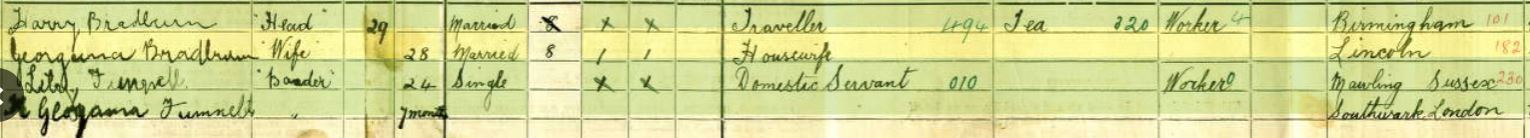 Harry Bradburn "Head" 29 Married 8 x x Traveller 494 Tea 320 Worker 4 Birmingham 101
Georgina Bradburn Wife 28 Married 8 1 1 Housewife Lincoln 182
Lily "Boader" 24 Single x x Domestic Servant 010 Worker 0 Sussex 230
Georgama Funnell " 7 months Southwark London